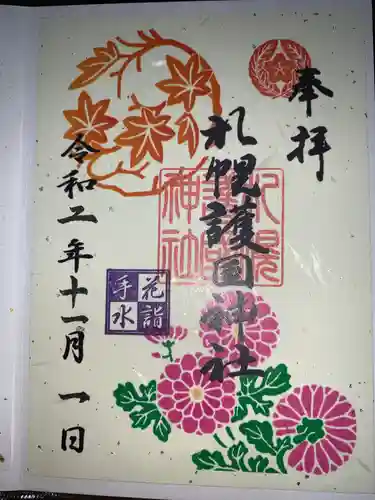 奉拝
札幌護国神社
札幌護国神社
花詣
手水
令和二年十一月一日